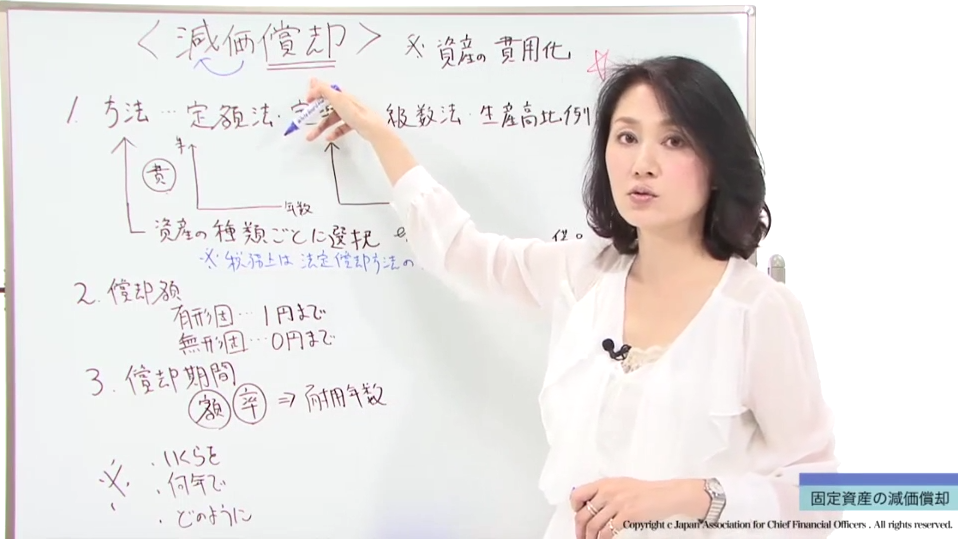 〈減価償却〉 ※ 資産の費用化
1. 方法…定額法・定 級数法・生産高比例
費 年数
資産の種類ごとに選択
※税務上は法定償却方法の
2. 償却額
有形固…1円まで
無形固…0円まで
3. 償却期間
額 率 ⇒ 耐用年数
※ ・いくらを
・何年で
・どのように
固定資産の減価償却
Copyright c Japan Association for Chief Financial Officers . All rights reserved.